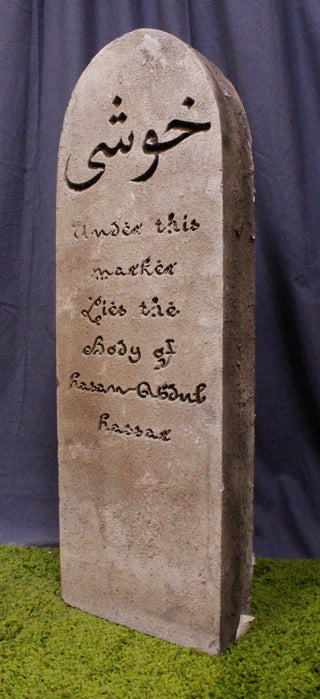 خوشی
Under this
marker
Lies the
Body of
hasan Abdul
hassar